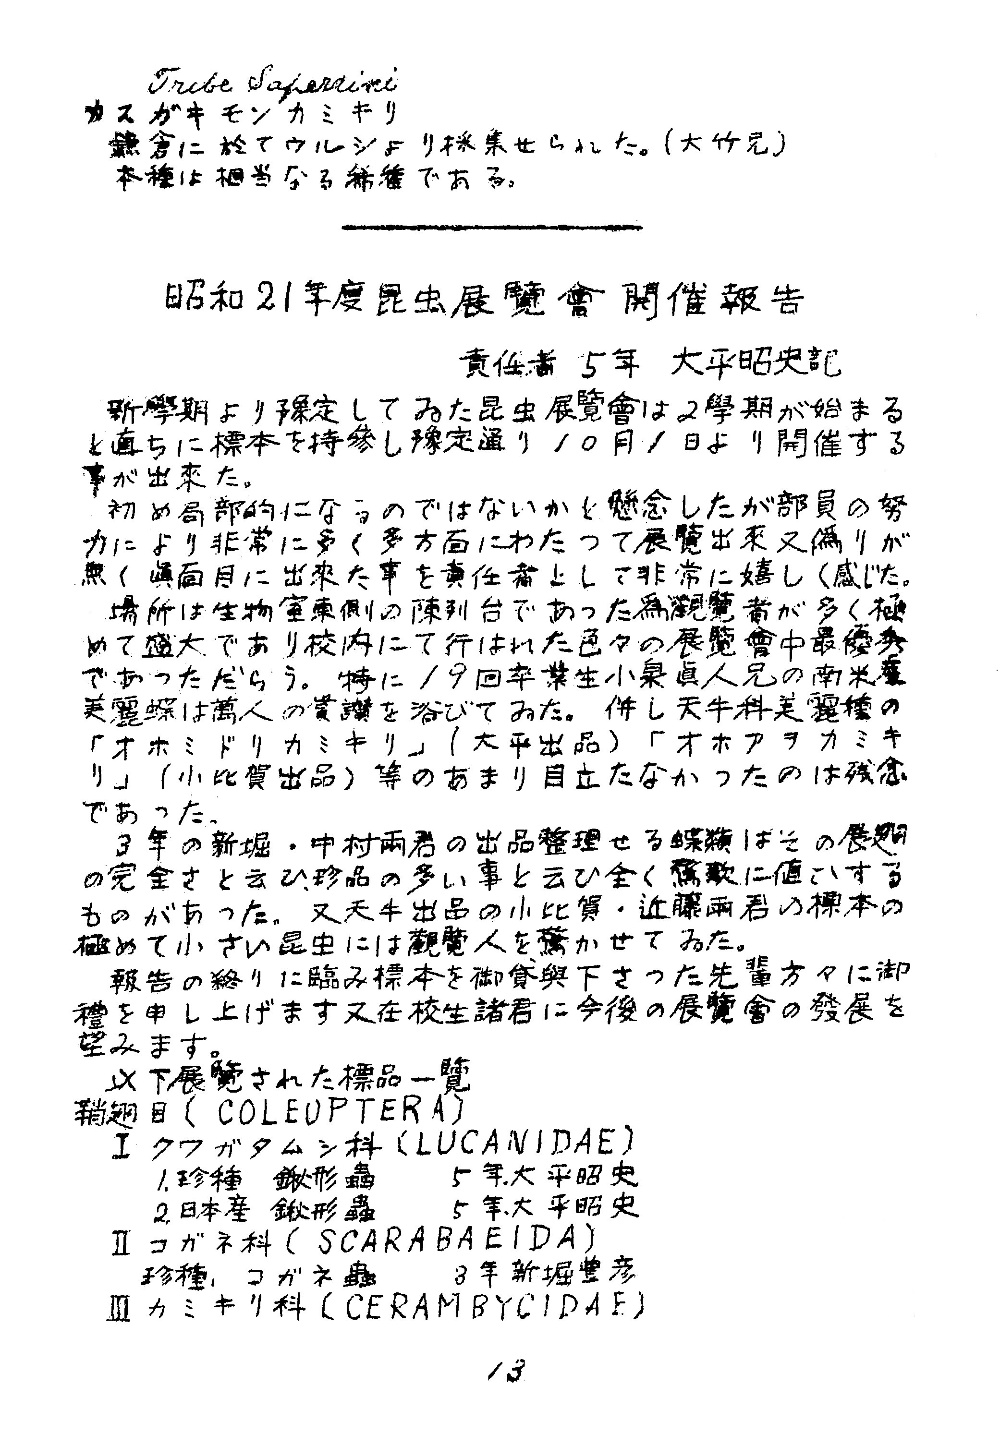 Tribe Saperdini
カスガキモンカミキリ
鎌倉に於てウルシより採集せられた。(大竹兄)
本種は相当なる稀種である。
昭和21年度昆虫展覽會開催報告
責任者 5年 大平昭史記
新學期より豫定してゐた昆虫展覽會は2學期が始まる
と直ちに標本を持參し豫定通り10月1日より開催する
事が出來た。
初め局部的になるのではないかと懸念したが部員の努
力により非常に多く多方面にわたつて展覽出來又偽りが
無く眞面目に出來た事を責任者として非常に嬉しく感じた。
場所は生物室東側の陳列台であった為觀覽者が多く極
めて盛大であり校内にて行はれた色々の展覽會中最優秀
であつただらう。特に19回卒業生小泉眞人兄の南米產
美麗蝶は萬人の賞讃を浴びてゐた。併し天牛科美麗種の
「オホミドリカミキリ」(大平出品)「オホアヲカミキ
リ」(小比賀出品)等のあまり目立たなかつたのは残念
であった。
3年の新堀・中村兩君の出品整理せる蝶類はその展翅
の完全さと云ひ、珍品の多い事と云ひ全く驚歎に値ひする
ものがあった。又天牛出品の小比賀・近藤兩君の標本の
極めて小さい昆虫には觀覽人を驚かせてゐた。
報告の終りに臨み標本を御貸與下さつた先輩方々に御
禮を申し上げます又在校生諸君に今後の展覽會の發展を
望みます。
以下展覽された標品一覽
鞘翅目(COLEUPTERA)
I クワガタムシ科(LUCANIDAE)
1.珍種 鍬形蟲 5年.大平昭史
2.日本産 鍬形蟲 5年.大平昭史
II コガネ科(SCARABAEIDA)
珍種、コガネ蟲 3年新堀豊彦
III カミキリ科(CERAMBYCIDAE)
13